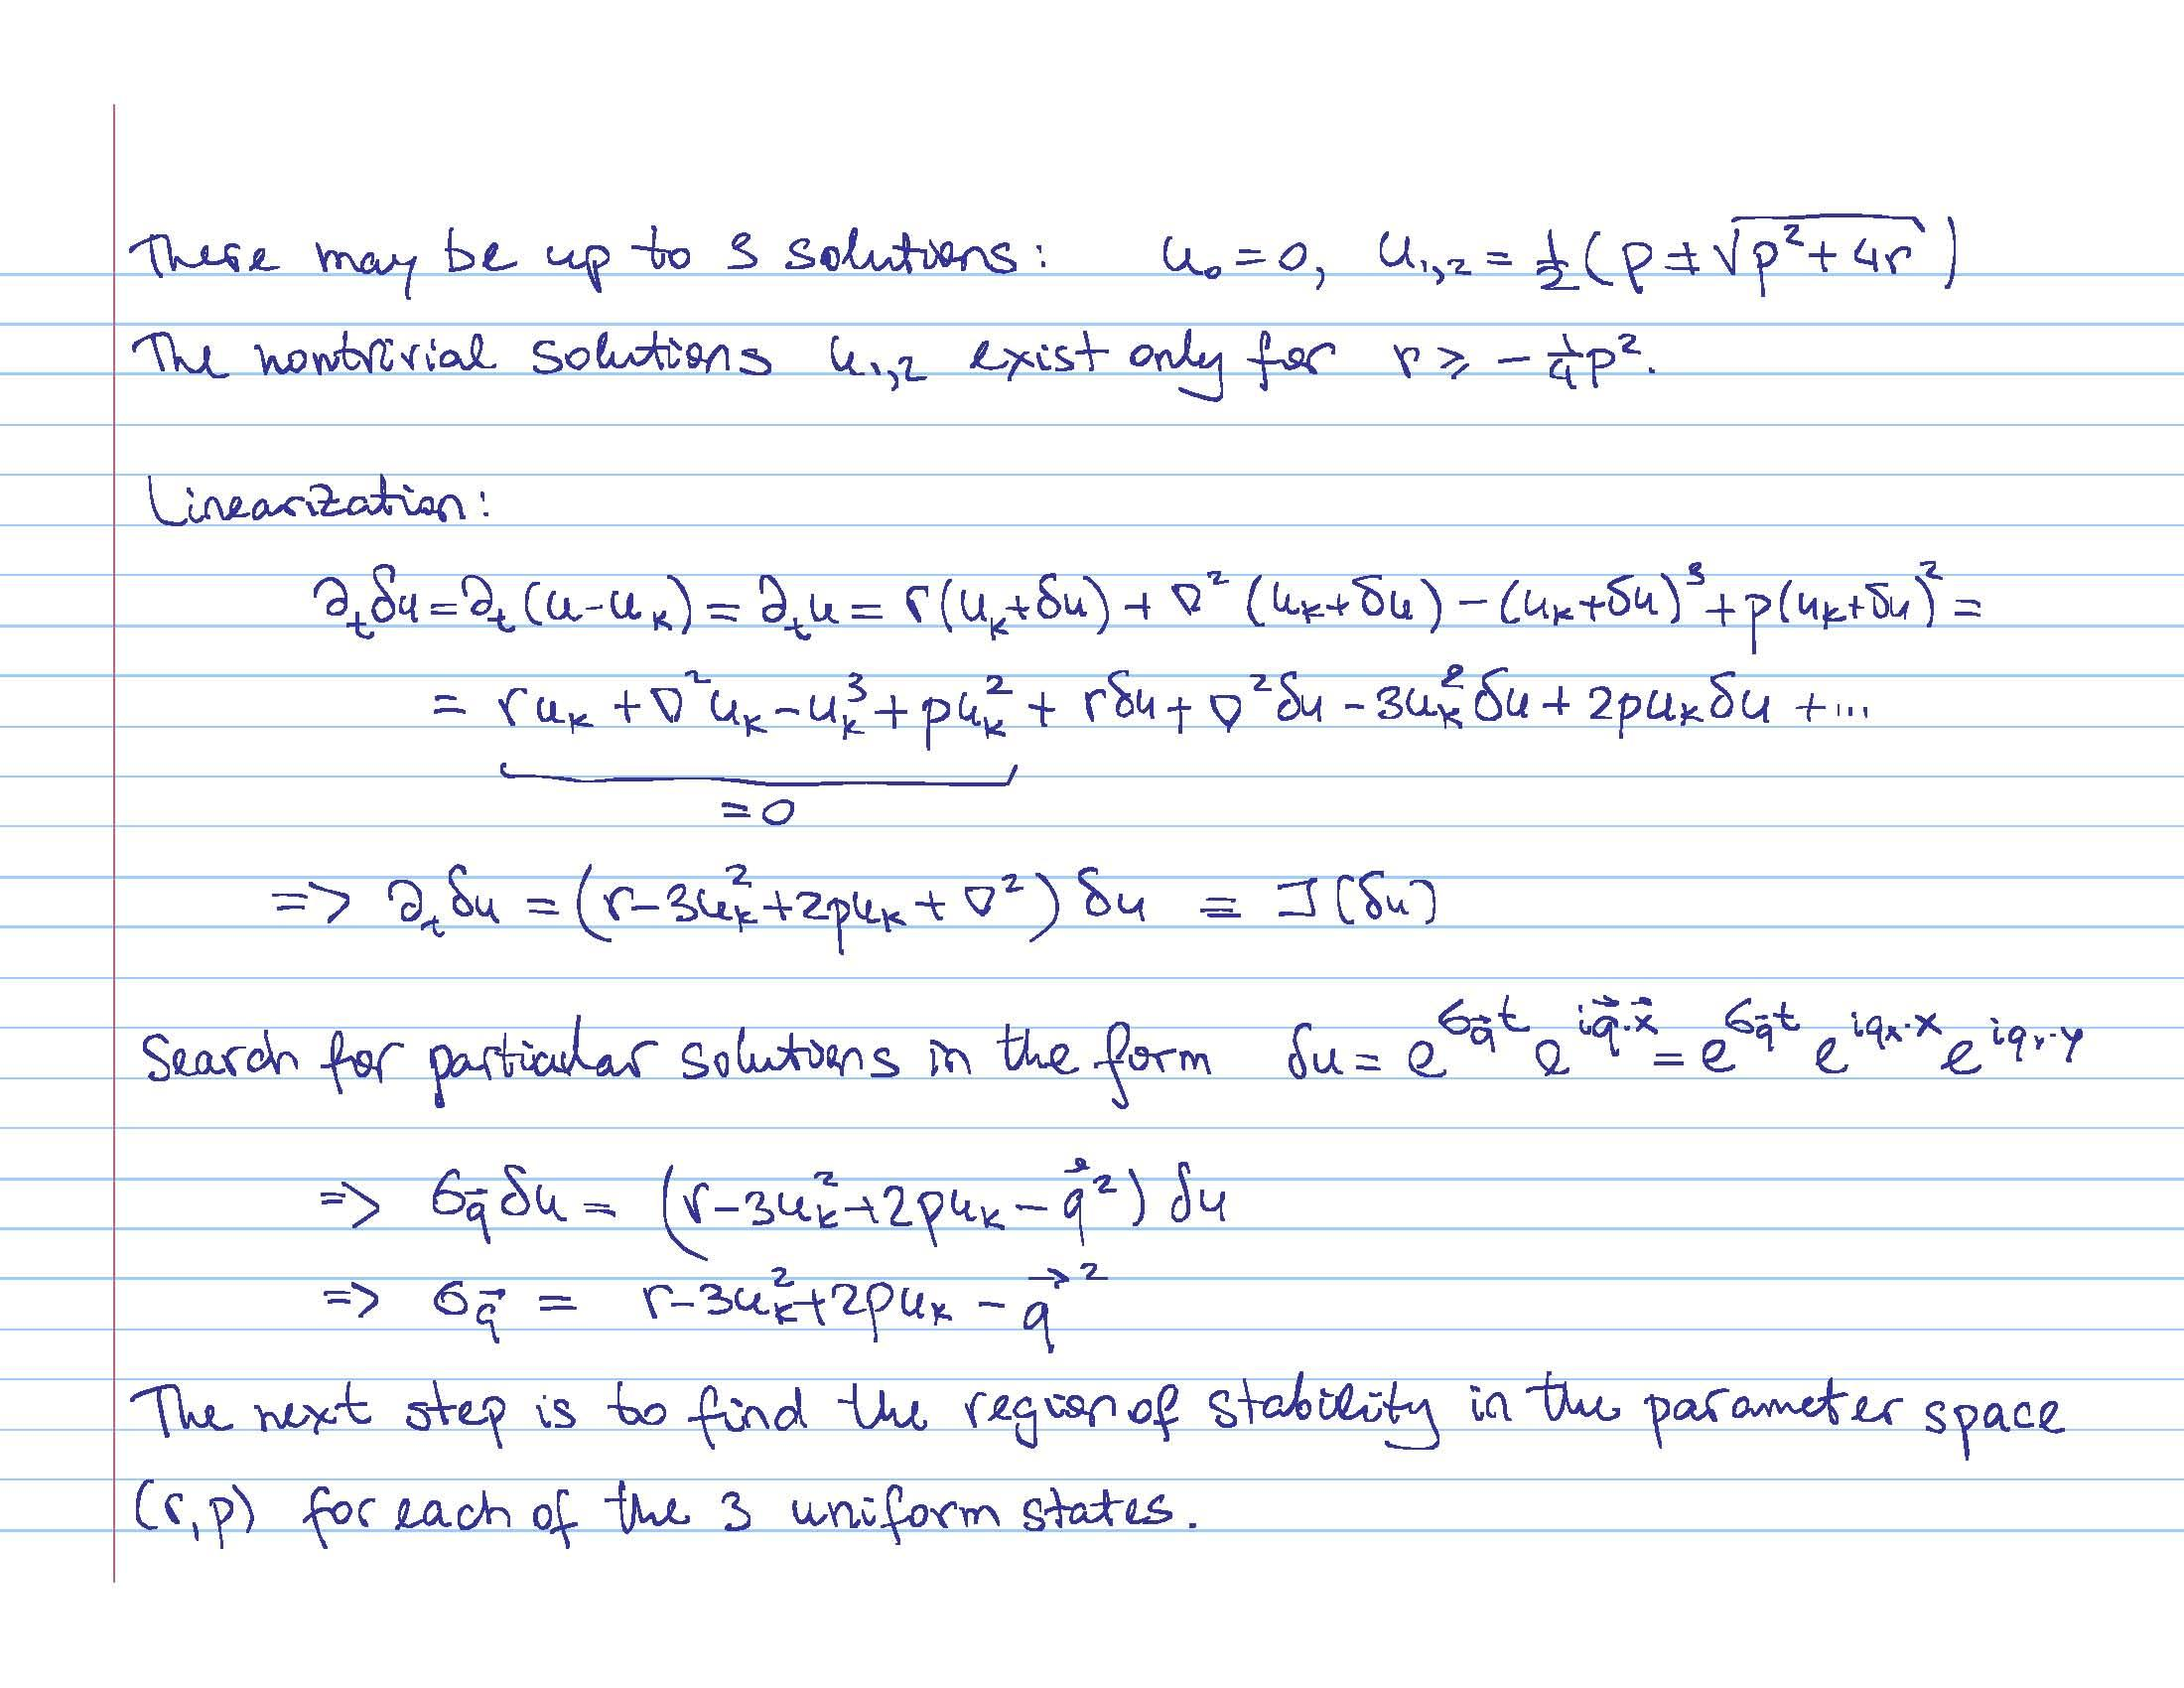 There may be up to 3 solutions: u₀ = 0, u₁,₂ = ½(p ± √(p² + 4r))
The nontrivial solutions u₁,₂ exist only for r ⩾ -¼p².
Linearization:
∂ₜδu = ∂ₜ(u - uₖ) = ∂ₜu = r(uₖ + δu) + ∇²(uₖ + δu) - (uₖ + δu)³ + p(uₖ + δu)² =
= ruₖ + ∇²uₖ - uₖ³ + puₖ² + rδu + ∇²δu - 3uₖ²δu + 2puₖδu + ...
= 0
=> ∂ₜδu = (r - 3uₖ² + 2puₖ + ∇²) δu ≡ J[δu]
Search for particular solutions in the form δu = e^{σ_q⃗ t} e^{iq⃗·x⃗} = e^{σ_q⃗ t} e^{iqₓ·x} e^{iq_y·y}
=> σ_q⃗ δu = (r - 3uₖ² + 2puₖ - q⃗²) δu
=> σ_q⃗ = r - 3uₖ² + 2puₖ - q⃗²
The next step is to find the region of stability in the parameter space
(r,p) for each of the 3 uniform states.